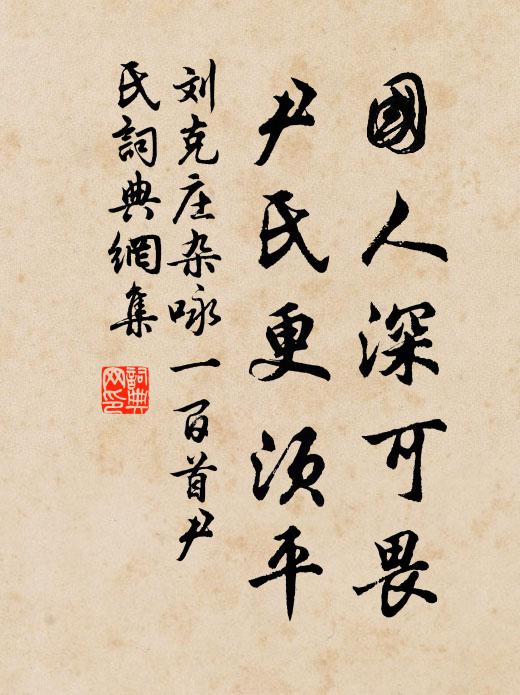 國人深可畏
尹氏更須平
刘克庄杂咏一百首尹
氏詞典網集
詞典
网印